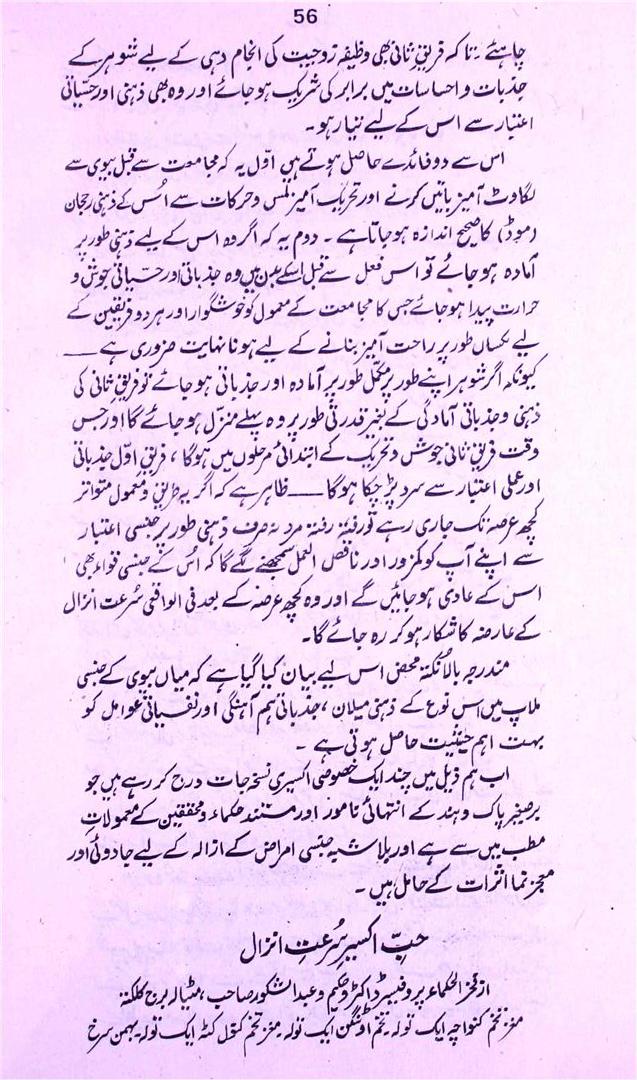 56
چاہئے۔ تاکہ فریقِ ثانی بھی وظیفہ زوجیت کی انجام دہی کے لیے شوہر کے
جذبات و احساسات میں برابر کی شریک ہو جائے اور وہ بھی ذہنی اور حسیّاتی
اعتبار سے اس کے لیے تیار ہو۔
اس سے دو فائدے حاصل ہوتے ہیں اوّل یہ کہ مجامعت سے قبل بیوی سے
لگاوٹ آمیز باتیں کرنے اور تحریک آمیز لمس و حرکات سے اُس کے ذہنی رجحان
(موڈ) کا صحیح اندازہ ہو جاتا ہے۔ دوم یہ کہ اگر وہ اس کے لیے ذہنی طور پر
آمادہ ہو جائے تو اس فعل سے قبل اسکے بدن میں وہ جذباتی اور حسیّاتی جوش و
حرارت پیدا ہو جائے جس کا مجامعت کے معمول کو خوشگوار اور ہر دو فریقین کے
لیے یکساں طور پر راحت آمیز بنانے کے لیے ہونا نہایت ضروری ہے ــــ
کیونکہ اگر شوہر اپنے طور پر مکمل طور پر آمادہ اور جذباتی ہو جائے تو فریقِ ثانی کی
ذہنی و جذباتی آمادگی کے بغیر قدرتی طور پر وہ پہلے منزل ہو جائے گا اور جس
وقت فریقِ ثانی جوش و تحریک کے ابتدائی مرحلوں میں ہوگا، فریقِ اوّل جذباتی
اور عملی اعتبار سے سرد پڑ چکا ہوگا ــــ ظاہر ہے کہ اگر یہ طریق و معمول متواتر
کچھ عرصہ تک جاری رہے تو رفتہ رفتہ مرد نہ صرف ذہنی طور پر جنسی اعتبار
سے اپنے آپ کو کمزور اور ناقص العمل سمجھنے لگے گا کہ اُس کے جنسی قواء بھی
اس کے عادی ہو جائیں گے اور وہ کچھ عرصہ کے بعد فی الواقعی سُرعت انزال
کے عارضہ کا شکار ہو کر رہ جائے گا۔
مندرجہ بالا نکتہ محض اس لیے بیان کیا گیا ہے کہ میاں بیوی کے جنسی
ملاپ میں اس نوع کے ذہنی میلان، جذباتی ہم آہنگی اور نفسیاتی عوامل کو
بہت اہم حیثیت حاصل ہوتی ہے۔
اب ہم ذیل میں چند ایک خصوصی اکسیری نسخہ جات درج کر رہے ہیں جو
برصغیر پاک و ہند کے انتہائی نامور اور مستند حکماء و محققین کے معمولاتِ
مطب میں سے ہے اور بلاشبہ جنسی امراض کے ازالہ کے لیے جادوئی اور
معجز نما اثرات کے حامل ہیں۔
حبِّ اکسیر سُرعتِ انزال
از فخر الحکماء پروفیسر ڈاکٹر و حکیم و عبدالشکور صاحب، مٹیالہ برج کلکتہ
مغز تخم کنواچہ ایک تولہ۔ تخم اوٹنگن ایک تولہ۔ مغز تخم کنول گٹہ ایک تولہ۔ بہمن سرخ